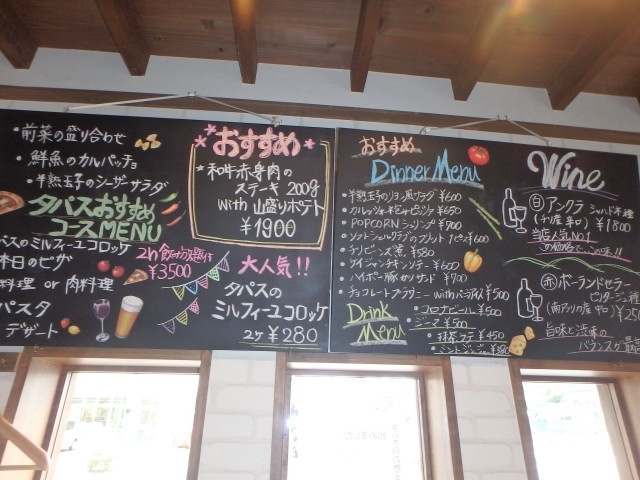 ・前菜の盛り合わせ
・鮮魚のカルパッチョ
・半熟玉子のシーザーサラダ
タパスおすすめ
コースMENU
パスのミルフィーユコロッケ
本日のピザ
料理 or 肉料理
パスタ
デザート
2h飲み放題付
¥3500
おすすめ
★和牛赤身肉の
ステーキ 200g
with 山盛りポテト
¥1900
大人気!!
タパスの
ミルフィーユコロッケ
2ケ ¥280
おすすめ
Dinner Menu
・半熟玉子のリヨン風サラダ ¥600
¥650
・POPCORNシュリンプ ¥700
¥500
¥580
・ケイジャンチキンソテー ¥600
¥900
・チョコレートブラウニー with バニラアイス ¥500
Drink
Menu
・コロナビール ¥500
・ジュース ¥500
・抹茶ラテ ¥450
Wine
白 アンクラ シャルドネ種
(チリ産 辛口) ¥1800
当店人気No.1
赤 ポーランドセラー
(南アフリカ産 辛口)
旨味と渋味の
バランスが最高